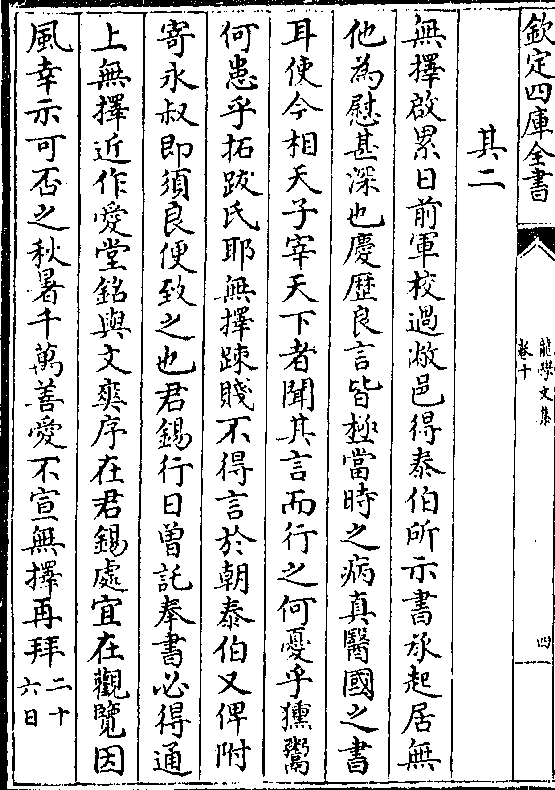 欽定四庫全書
龍學文集
卷十
四
其二
無擇啟累日前軍校過敝邑得泰伯所示書承起居無
他為慰甚深也慶歴良言皆極當時之病真醫國之書
耳使今相天子宰天下者聞其言而行之何憂乎獯鬻
何患乎拓跋氏耶無擇踈賤不得言於朝泰伯又俾附
寄永叔即須良便致之也君錫行日曽託奉書必得通
上無擇近作愛堂銘與文爽序在君錫處宜在觀覽因
風幸示可否之秋暑千萬善愛不宣無擇再拜二十
六日